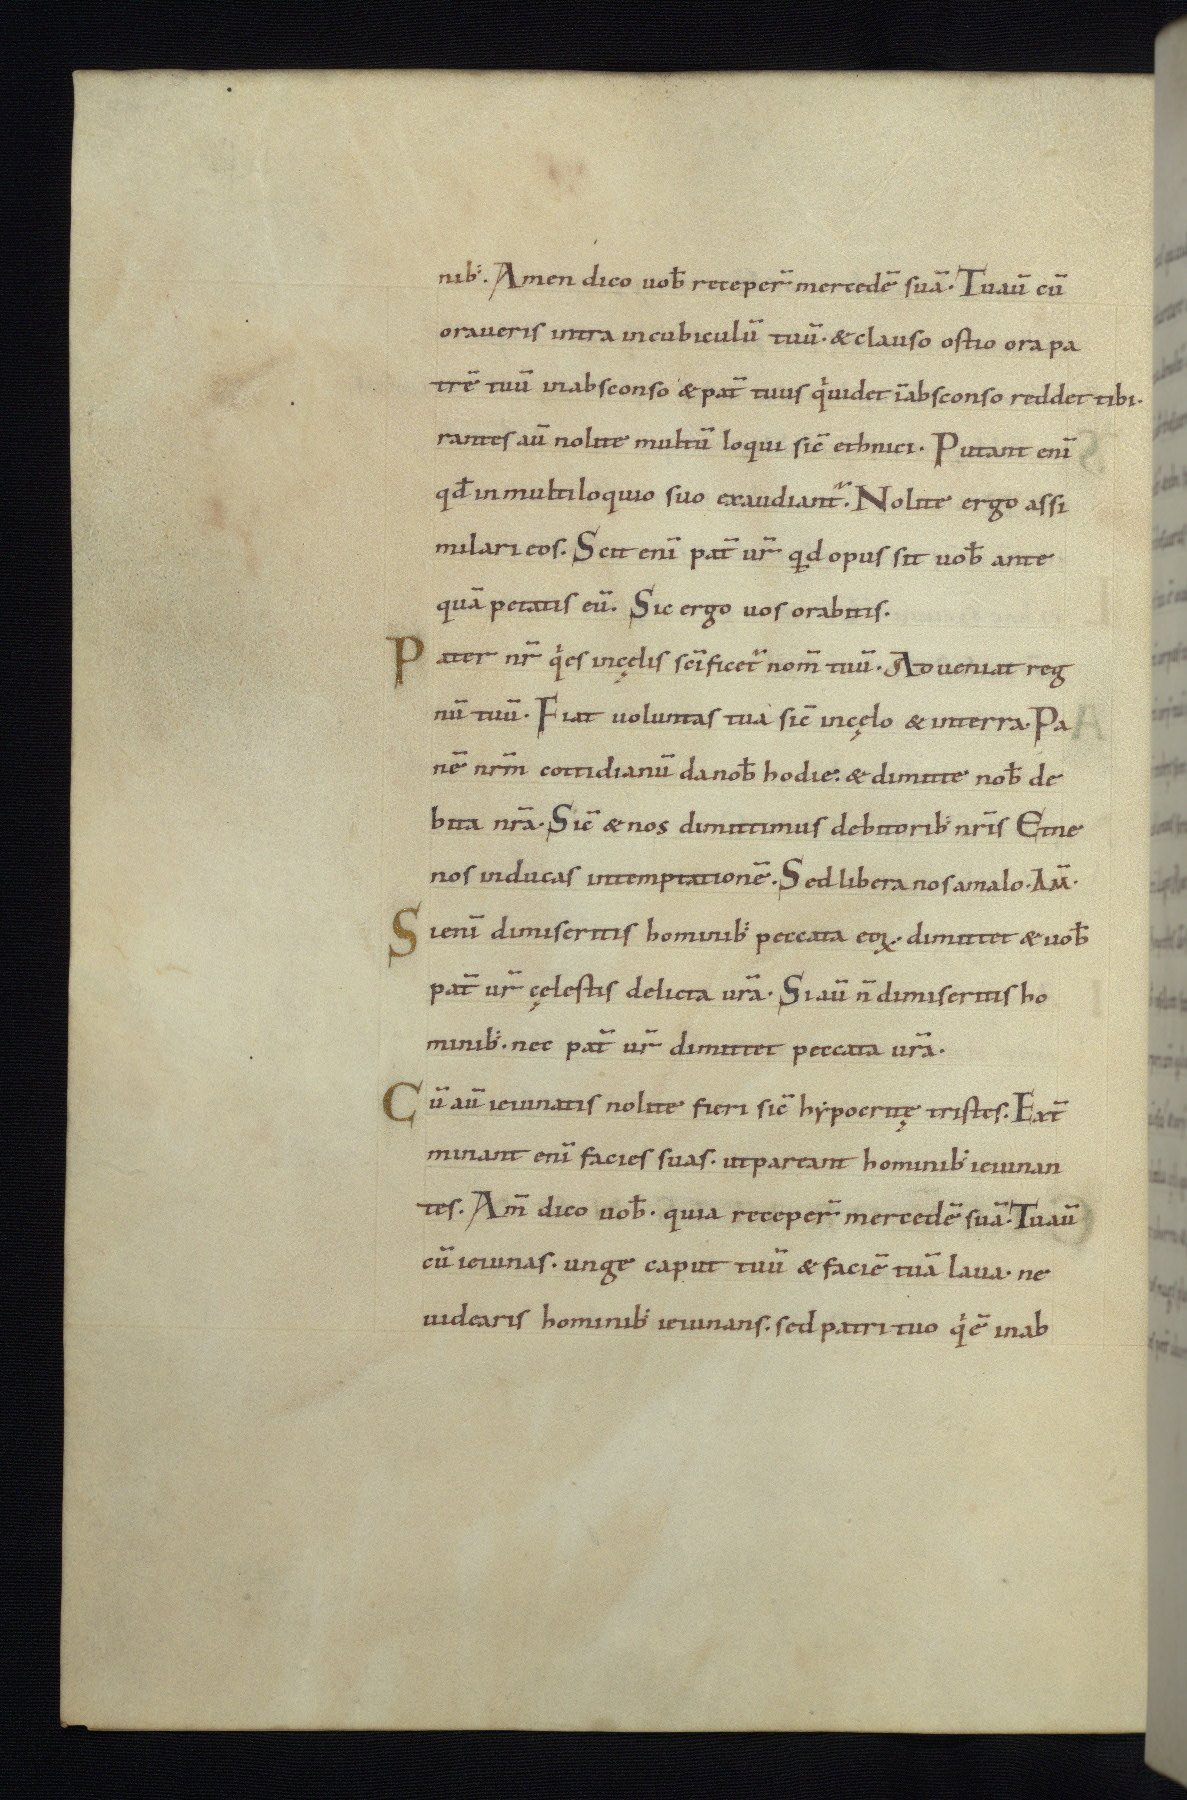 nib᷒. Amen dico uob̄ receper̄ mercedē suā. Tu aū cū
oraueris intra in cubiculū tuū. & clauso ostio ora pa
trē tuū in absconso & pat̄ tuus qͥ uidet ī absconso reddet tibi.
rantes aū nolite multū loqui sic̄ ethnici. Putant enī
qd̄ in multiloquio suo exaudiant᷑. Nolite ergo assi
milari eos. Scit enī pat̄ ur̄ qd opus sit uob̄ ante
quā petatis eū. Sic ergo uos orabitis.
Pater nr̄ qͥ es in cęlis sc̄ificet᷑ nom̄ tuū. Adueniat reg
nū tuū. Fiat uoluntas tua sic̄ in cęlo & in terra. Pa
nē nrm̄ cottidianū da nob̄ hodie. & dimitte nob̄ de
bita nr̄a. Sic̄ & nos dimittimus debitorib᷒ nr̄is Et ne
nos inducas in temptationē. Sed libera nos a malo. AM̄.
Si enī dimiseritis hominib᷒ peccata eoꝝ. dimittet & uob̄
pat̄ ur̄ cęlestis delicta ur̄a. Si aū n̄ dimiseritis ho
minib᷒. nec pat̄ ur̄ dimittet peccata ur̄a.
Cū aū ieiunatis nolite fieri sic̄ hẏpocritę tristes. Ext̄
minant enī facies suas. ut pareant hominib᷒ ieiunan
tes. Am̄ dico uob̄. quia receper̄ mercedē suā. Tu aū
cū ieiunas. unge caput tuū & faciē tuā laua. ne
uidearis hominib᷒ ieiunans. sed patri tuo qͥ ē in ab